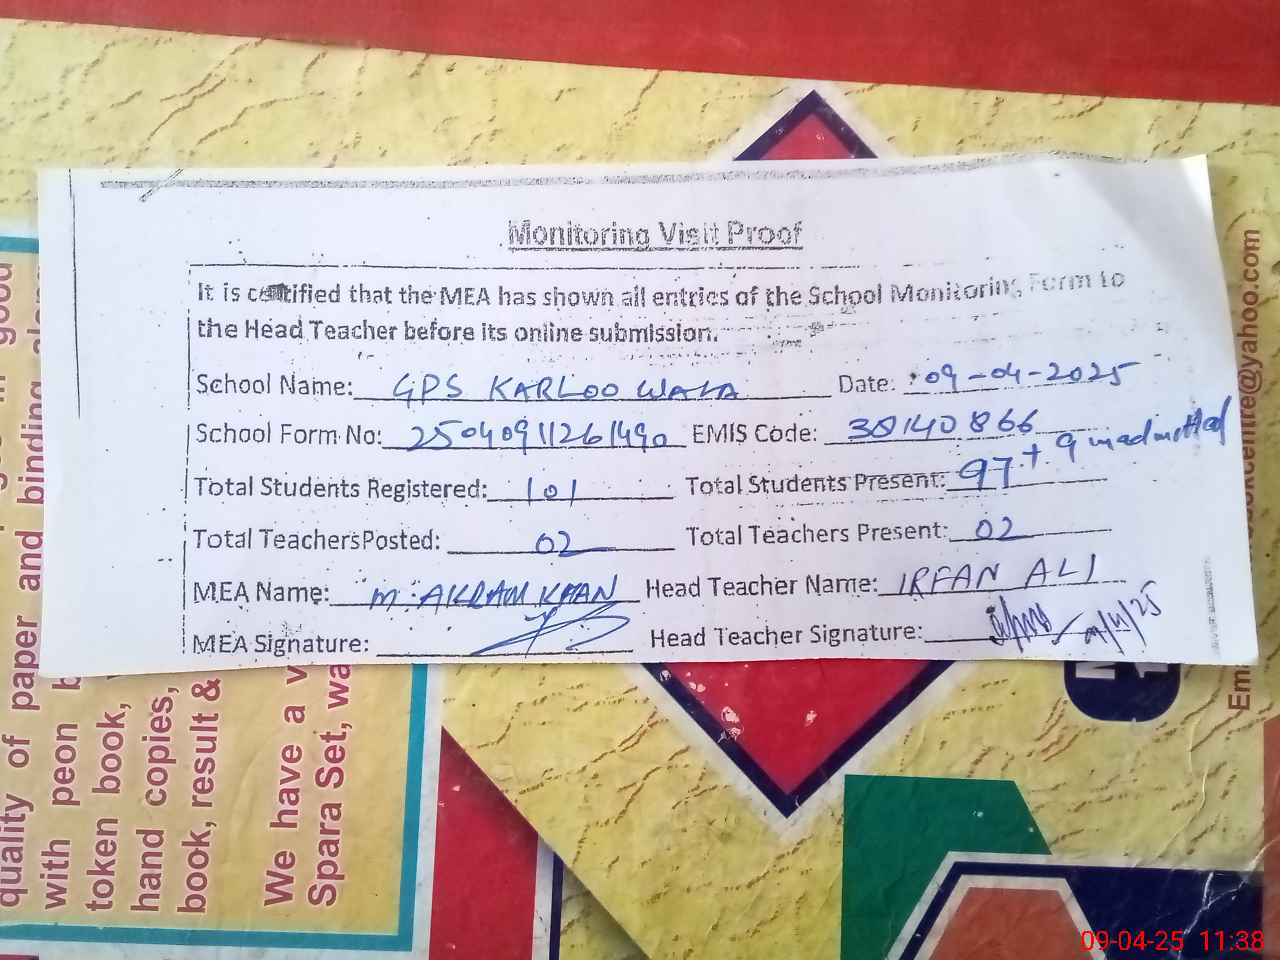 Monitoring Visit Proof
It is certified that the MEA has shown all entries of the School Monitoring Form to
the Head Teacher before its online submission.
School Name: GPS KARLOO WALA Date: 09-04-2025
School Form No: 25040911261490 EMIS Code: 38140866
Total Students Registered: 101 Total Students Present: 97 + 9 unadmitted
Total Teachers Posted: 02 Total Teachers Present: 02
MEA Name: M. AKRAM KHAN Head Teacher Name: IRFAN ALI
MEA Signature: Head Teacher Signature:
quality of paper and binding
with peon
token book,
hand copies,
book, result &
We have a
Spara Set,
@yahoo.com
09-04-25 11:38